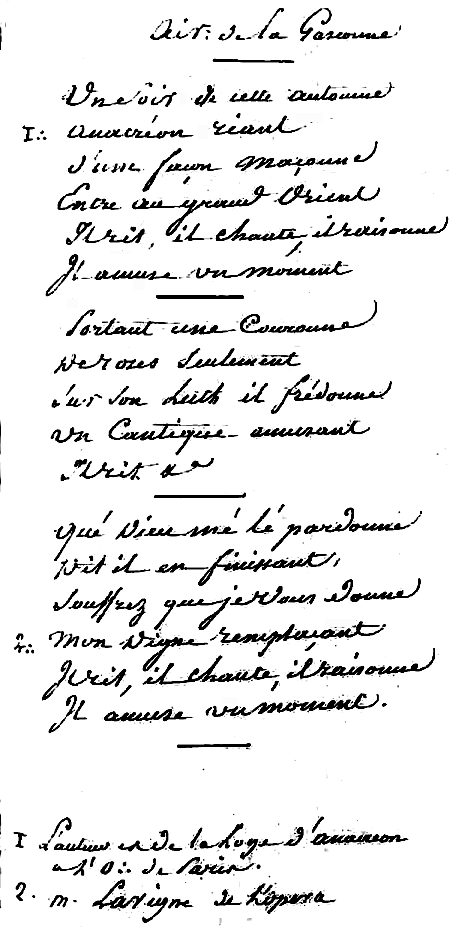 Air: de la Gasconne
Un Soir de cette automne
1∴ anacréon riant
d'une façon maçonne
Entre au grand Orient
Il rit, il chante, il raisonne
Il amuse un moment
Portant une Couronne
De roses seulement
Sur son Luth il frédonne
un Cantique amusant
Il rit &a
qué Dieu mé lé pardonne
Dit il en finissant,
Souffrez que je vous donne
2∴ Mon digne remplaçant
Il rit, il chante, il raisonne
Il amuse un moment.
1 L'auteur est de la Loge d'anacreon
a l'O∴ de Paris.
2. m. Lavigne de l'opera